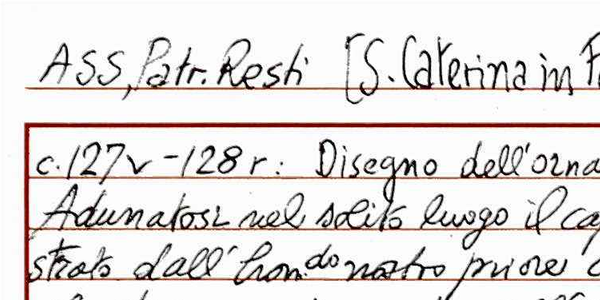 ASS, Patr. Resti [S. Caterina in F
c. 127v - 128r: Disegno dell'orna
Adunatosi nel solito luogo il cap
strato dall' hon.do nostro priore